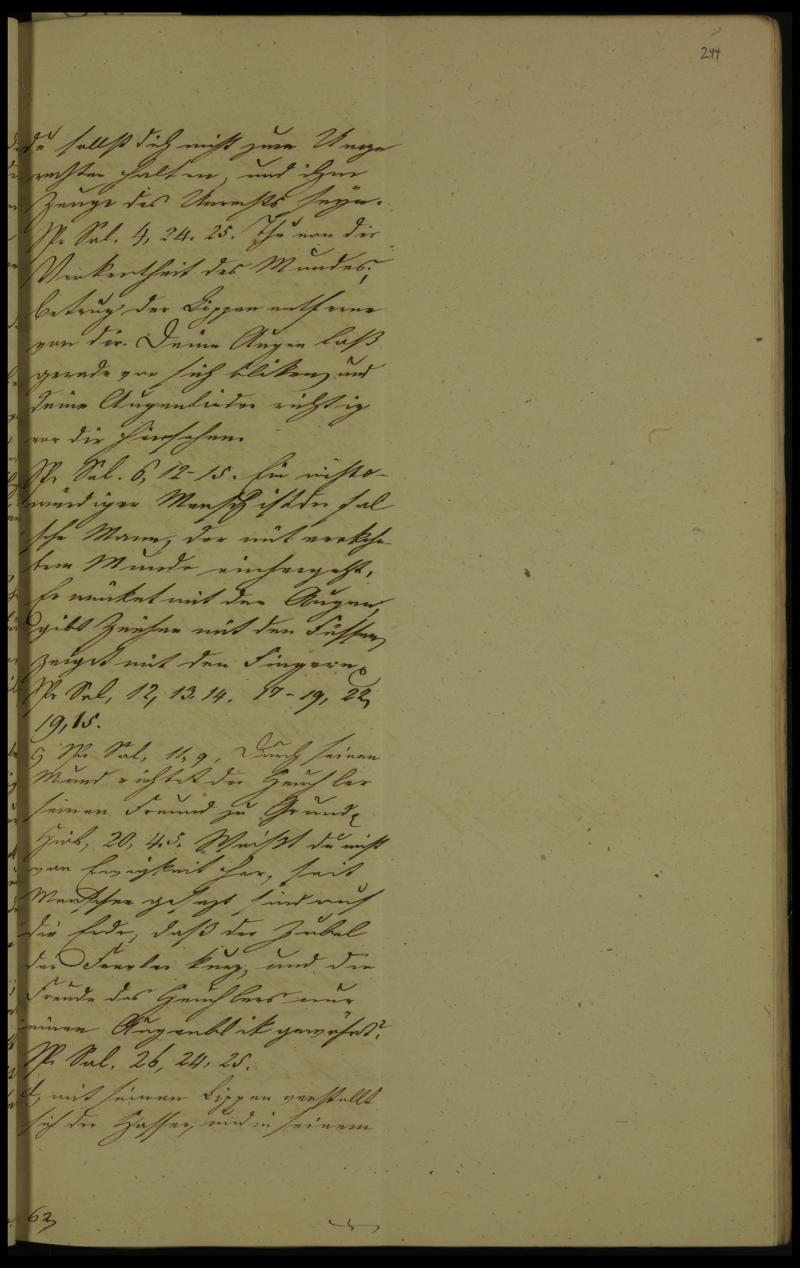 244
du sollst dich nicht zum Unge
rechten halten, und ihm
Zeuge des Unrechts seyn.
Sp. Sal. 4, 24. 25. Thu von dir
Verkehrtheit des Mundes,
betrug der Lippen entferne
von dir. Deine Augen laß
gerade vor sich bliken, und
deine Augenlieder richtig
vor dir hinsehen.
Sp. Sal. 6, 12-15. Ein nichts-
würdiger Mensch ist der fal
sche Mann, der mit verkehr-
tem Munde einhergeht,
Er winket mit den Augen,
gibt Zeichen mit den Füssen,
zeiget mit den Fingern.
Sp. Sal, 12, 13. 14. 17-19, 22,
19, 15.
c, Sp. Sal, 11, 9, Durch seinen
Mund richtet der Heuchler
seinen Freund zu Grund,
Hiob, 20, 4. 5. Weißt du nicht
von Ewigkeit her, seit
Menschen gesezt sind auf
die Erde, daß der Jubel
der Frevler kurz, und die
Freude des Heuchlers nur
einen Augenblik gewährt?
Sp. Sal. 26, 24, 25.
d, mit seinen Lippen verstellt
sich der Hasser, und in seinem
62,